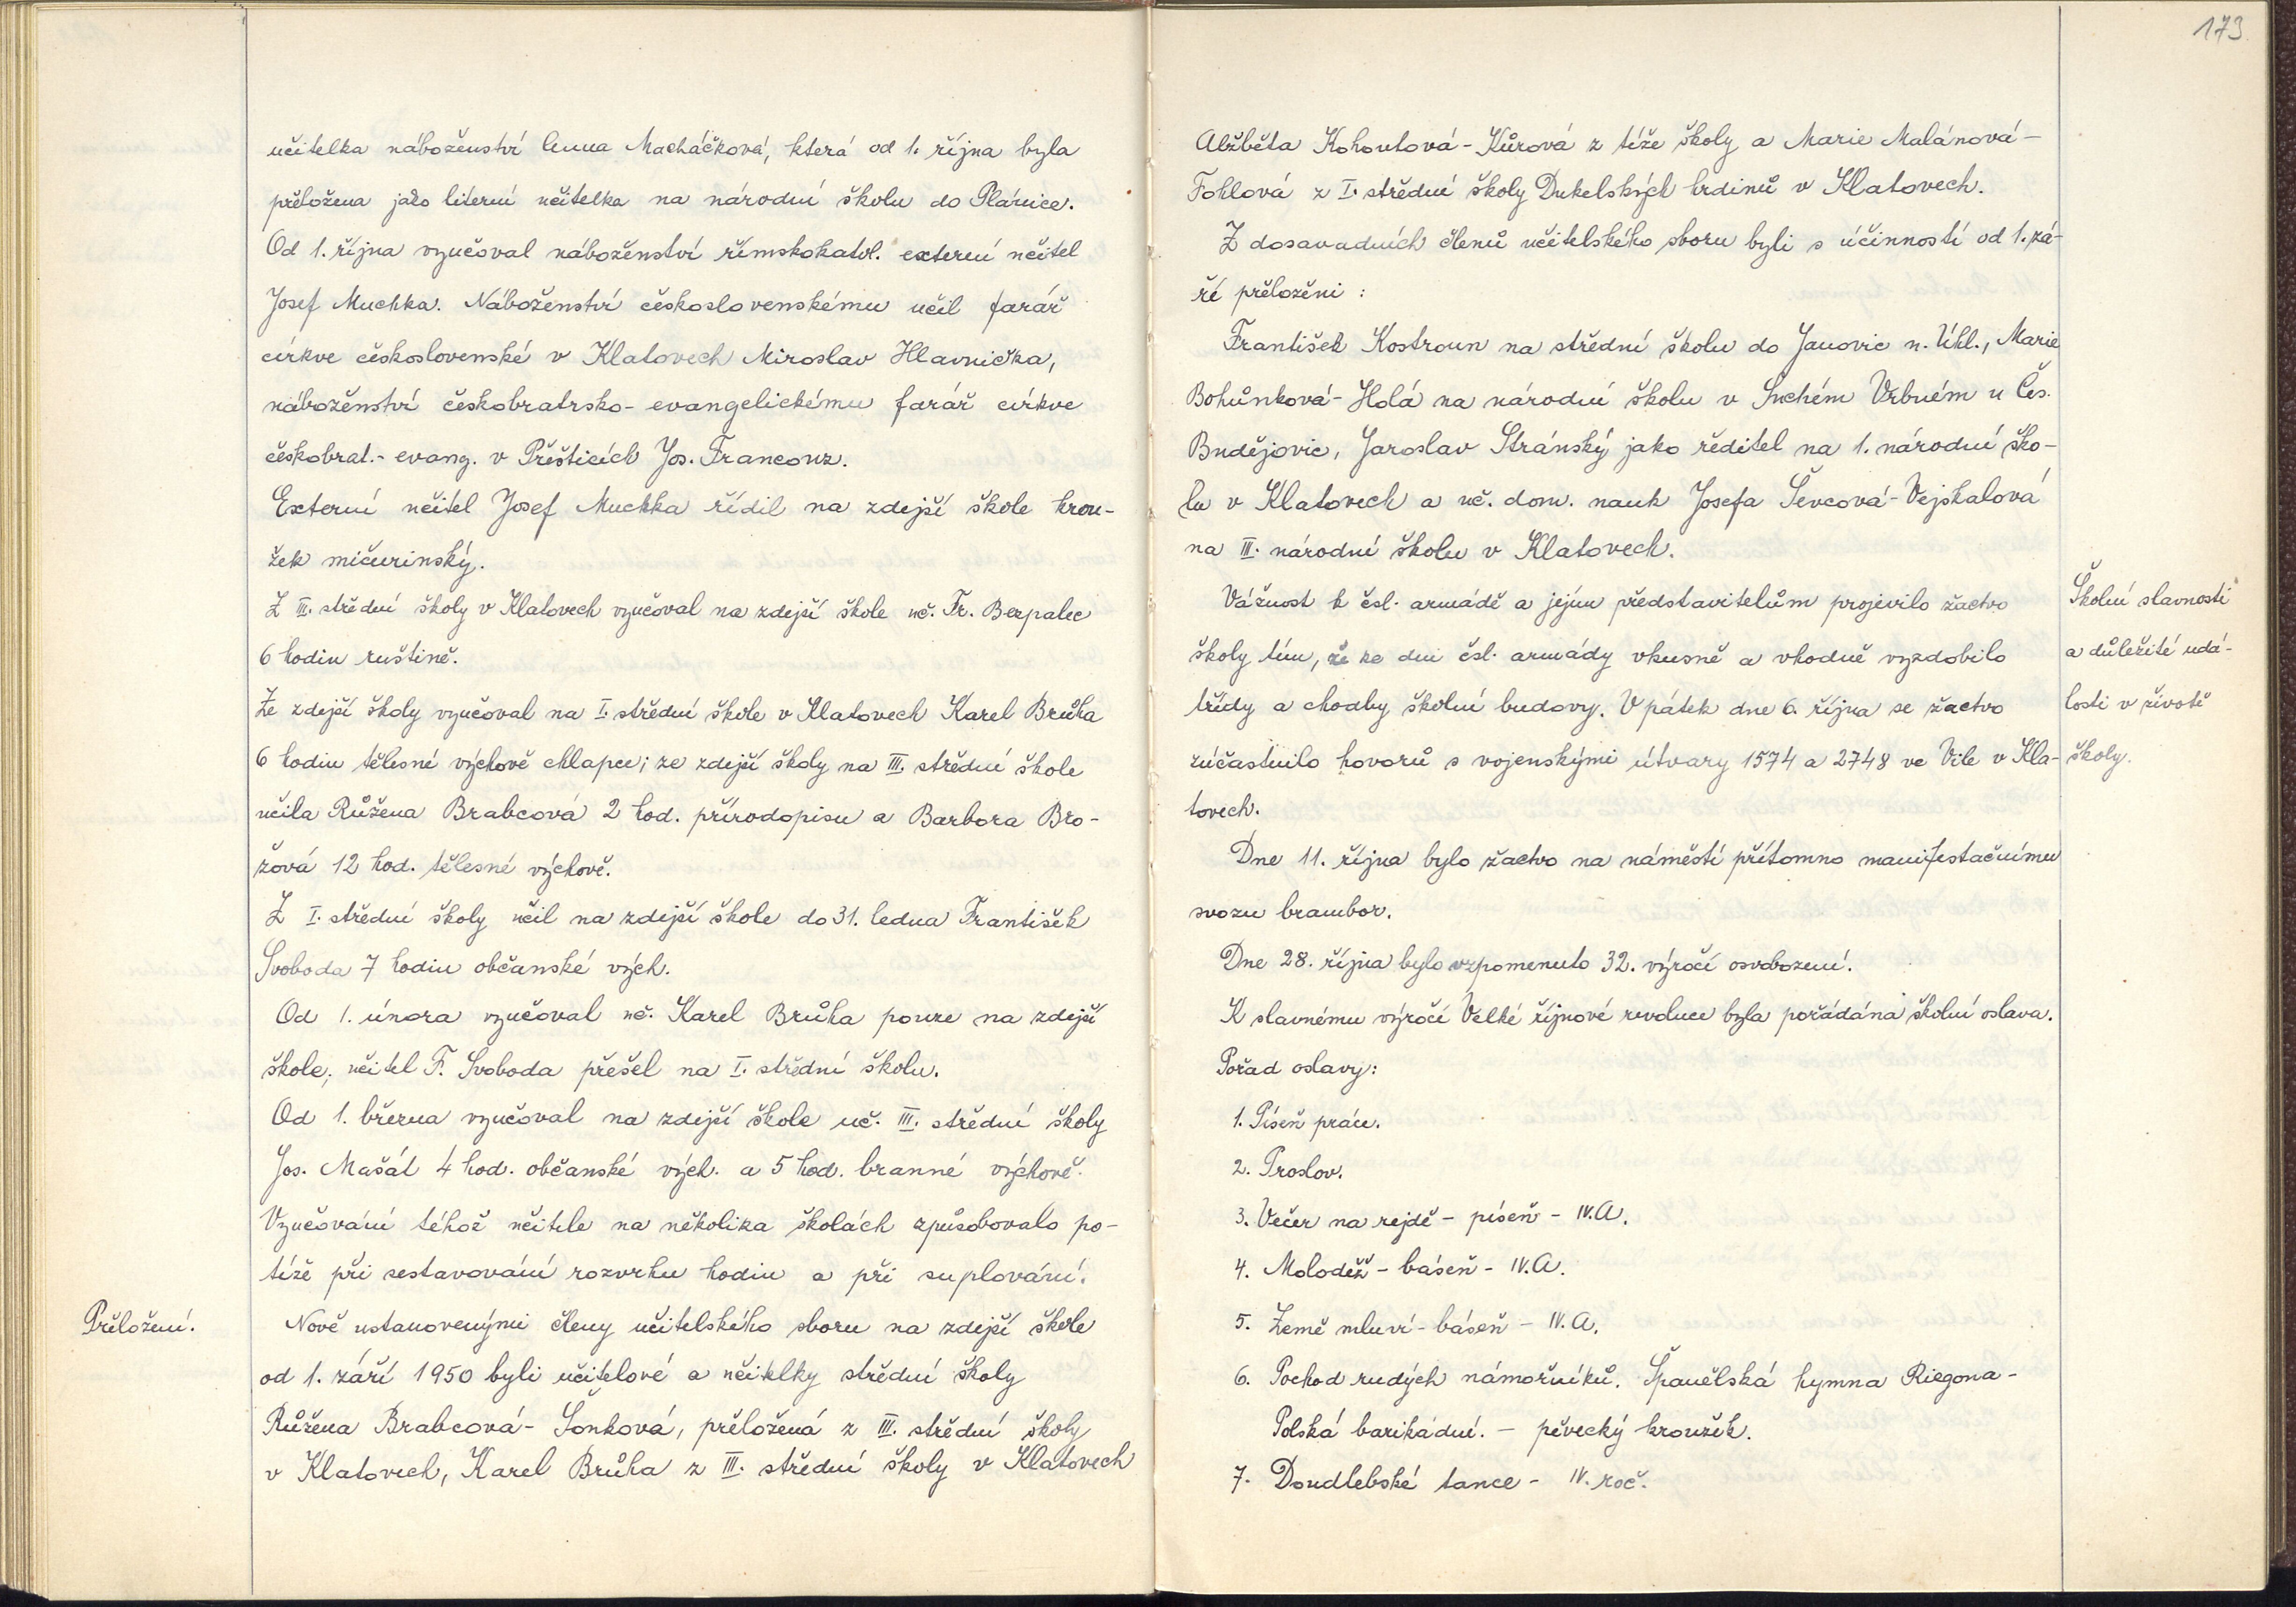 učitelka náboženství Anna Macháčková, která od 1. října byla
přeložena jako literní učitelka na národní školu do Plánice.
Od 1. října vyučoval náboženství římskokatol. externí učitel
Josef Muchka. Náboženství československému učil farář
církve československé v Klatovech Miroslav Hlavnička,
náboženství českobratrsko-evangelickému farář církve
českobrat.-evang. v Přešticích Jos. Francouz.
Externí učitel Josef Muchka řídil na zdejší škole krou-
žek mičurinský.
Z III. střední školy v Klatovech vyučoval na zdejší škole uč. Fr. Bezpalec
6 hodin ruštině.
Ze zdejší školy vyučoval na I. střední škole v Klatovech Karel Brůha
6 hodin tělesné výchově chlapce; ze zdejší školy na III. střední škole
učila Růžena Brabcová 2 hod. přírodopisu a Barbora Bro-
žová 12 hod. tělesné výchově.
Z I. střední školy učil na zdejší škole do 31. ledna František
Svoboda 7 hodin občanské vých.
Od 1. února vyučoval uč. Karel Brůha pouze na zdejší
škole; učitel F. Svoboda přešel na I. střední školu.
Od 1. března vyučoval na zdejší škole uč. III. střední školy
Jos. Mašát 4 hod. občanské vých. a 5 hod. branné výchově.
Vyučování téhož učitele na několika školách způsobovalo po-
tíže při sestavování rozvrhu hodin a při suplování.
Přeložení.
Nově ustanovenými členy učitelského sboru na zdejší škole
od 1. září 1950 byli učitelové a učitelky střední školy
Růžena Brabcová-Šonková, přeložená z III. střední školy
v Klatovech, Karel Brůha z III. střední školy v Klatovech
173.
Alžběta Kohoutová-Kůrová z téže školy a Marie Malánová-
Fohlová z I. střední školy Dukelských hrdinů v Klatovech.
Z dosavadních členů učitelského sboru byli s účinností od 1. zá-
ří přeloženi:
František Kostroun na střední školu do Janovic n. Úhl., Marie
Bohůnková-Holá na národní školu v Suchém Vrbném u Čes.
Budějovic, Jaroslav Stránský jako ředitel na 1. národní ško-
lu v Klatovech a uč. dom. nauk Josefa Ševcová-Vejskalová
na III. národní školu v Klatovech.
Vážnost k čsl. armádě a jejím představitelům projevilo žactvo
školy tím, že ke dni čsl. armády vkusně a vhodně vyzdobilo
třídy a chodby školní budovy. V pátek dne 6. října se žactvo
zúčastnilo hovorů s vojenskými útvary 1574 a 2748 ve Vile v Kla-
tovech.
Školní slavnosti
a důležité udá-
losti v životě
školy.
Dne 11. října bylo žactvo na náměstí přítomno manifestačnímu
svozu brambor.
Dne 28. října bylo vzpomenuto 32. výročí osvobození.
K slavnému výročí Velké říjnové revoluce byla pořádána školní oslava.
Pořad oslavy:
1. Píseň práce.
2. Proslov.
3. Večer na rejdě - píseň - IV.A.
4. Moloděž - báseň - IV.A.
5. Země mluví - báseň - IV.A.
6. Pochod rudých námořníků. Španělská hymna Riegona-
Polská barikádní. - pěvecký kroužek.
7. Doudlebské tance - IV. roč.